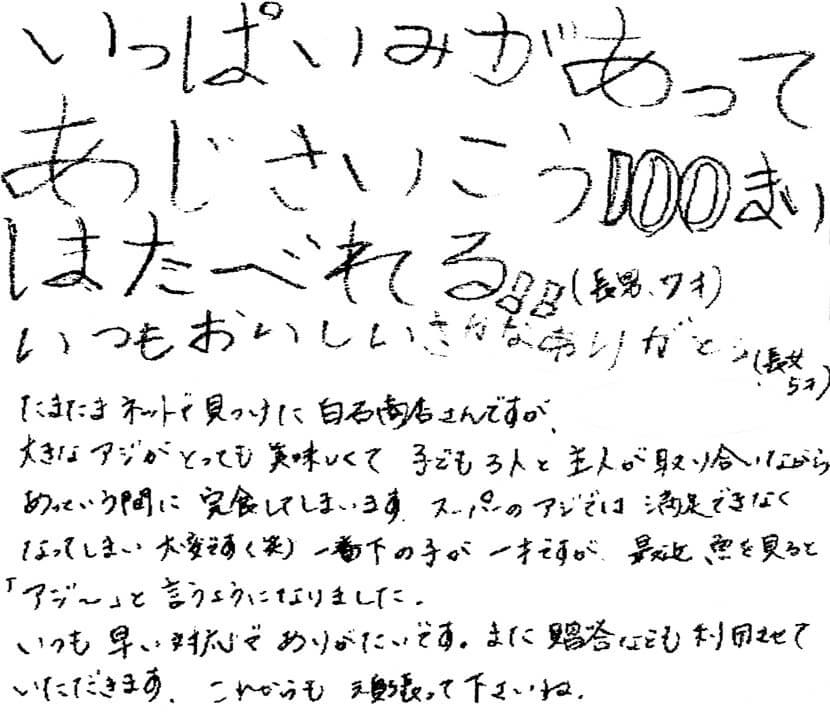 いっぱいみがあって
あじさいこう100まい
はたべれる!!(長男、7才)
いつもおいしいさかなありがとう(長女5才)
たまたまネットで見つけた白石商店さんですが、
大きなアジがとっても美味しくて子ども3人と主人が取り合いながら
あっという間に完食してしまいます。スーパーのアジでは満足できなく
なってしまい大変です(笑)一番下の子が一才ですが、最近魚を見ると
「アジ〜」と言うようになりました。
いつも早い対応でありがたいです。また贈答などでも利用させて
いただきます。これからも頑張って下さいね。